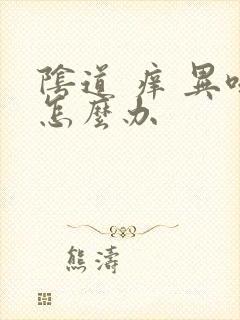 陰道 痒 異味
怎麼办
熊濤